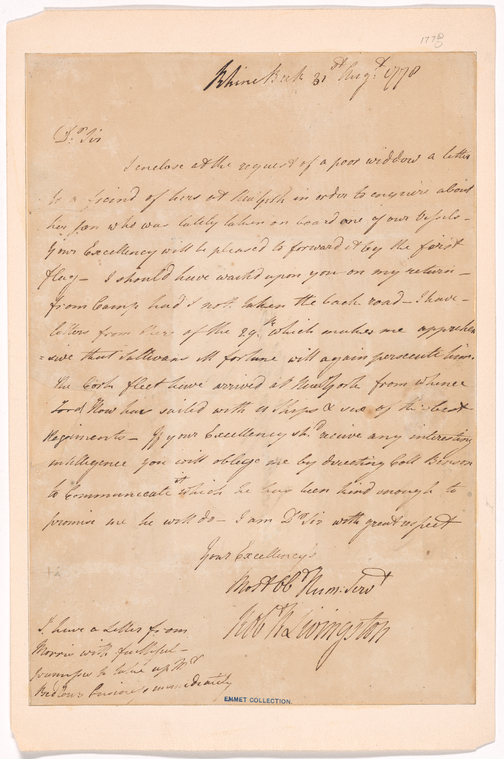 1778
Rhine Beck 31st Augt. 1778
Dr. Sir
I enclose at the request of a poor widdow a letter
to a friend of hers at NewYork in order to enquire about
her son who was lately taken on board one of our Vessels -
Your Excellency will be pleased to forward it by the first
flag - I should have waited upon you on my return -
from Camp had I not taken the back road - I have -
letters from there of the 29th. which makes me apprehen
=sive that Sullivans ill fortune will again persecute him.
The Cork fleet have arrived at NewYork from whence
Lord How has sailed with 11 Ships & six of the best
Regiments - If your Excellency shd. receive any interesting
intelligence you will oblige me by directing Coll Benson
to Communicate it which he has been kind enough to
promise me he will do - I am Dr Sir with great respect
Your Excellency's
Most Obt. Hum: Servt
Robt R Livingston
I have a Letter from
Morris with faithful -
promises to take up Mr
business immediately
EMMET COLLECTION.